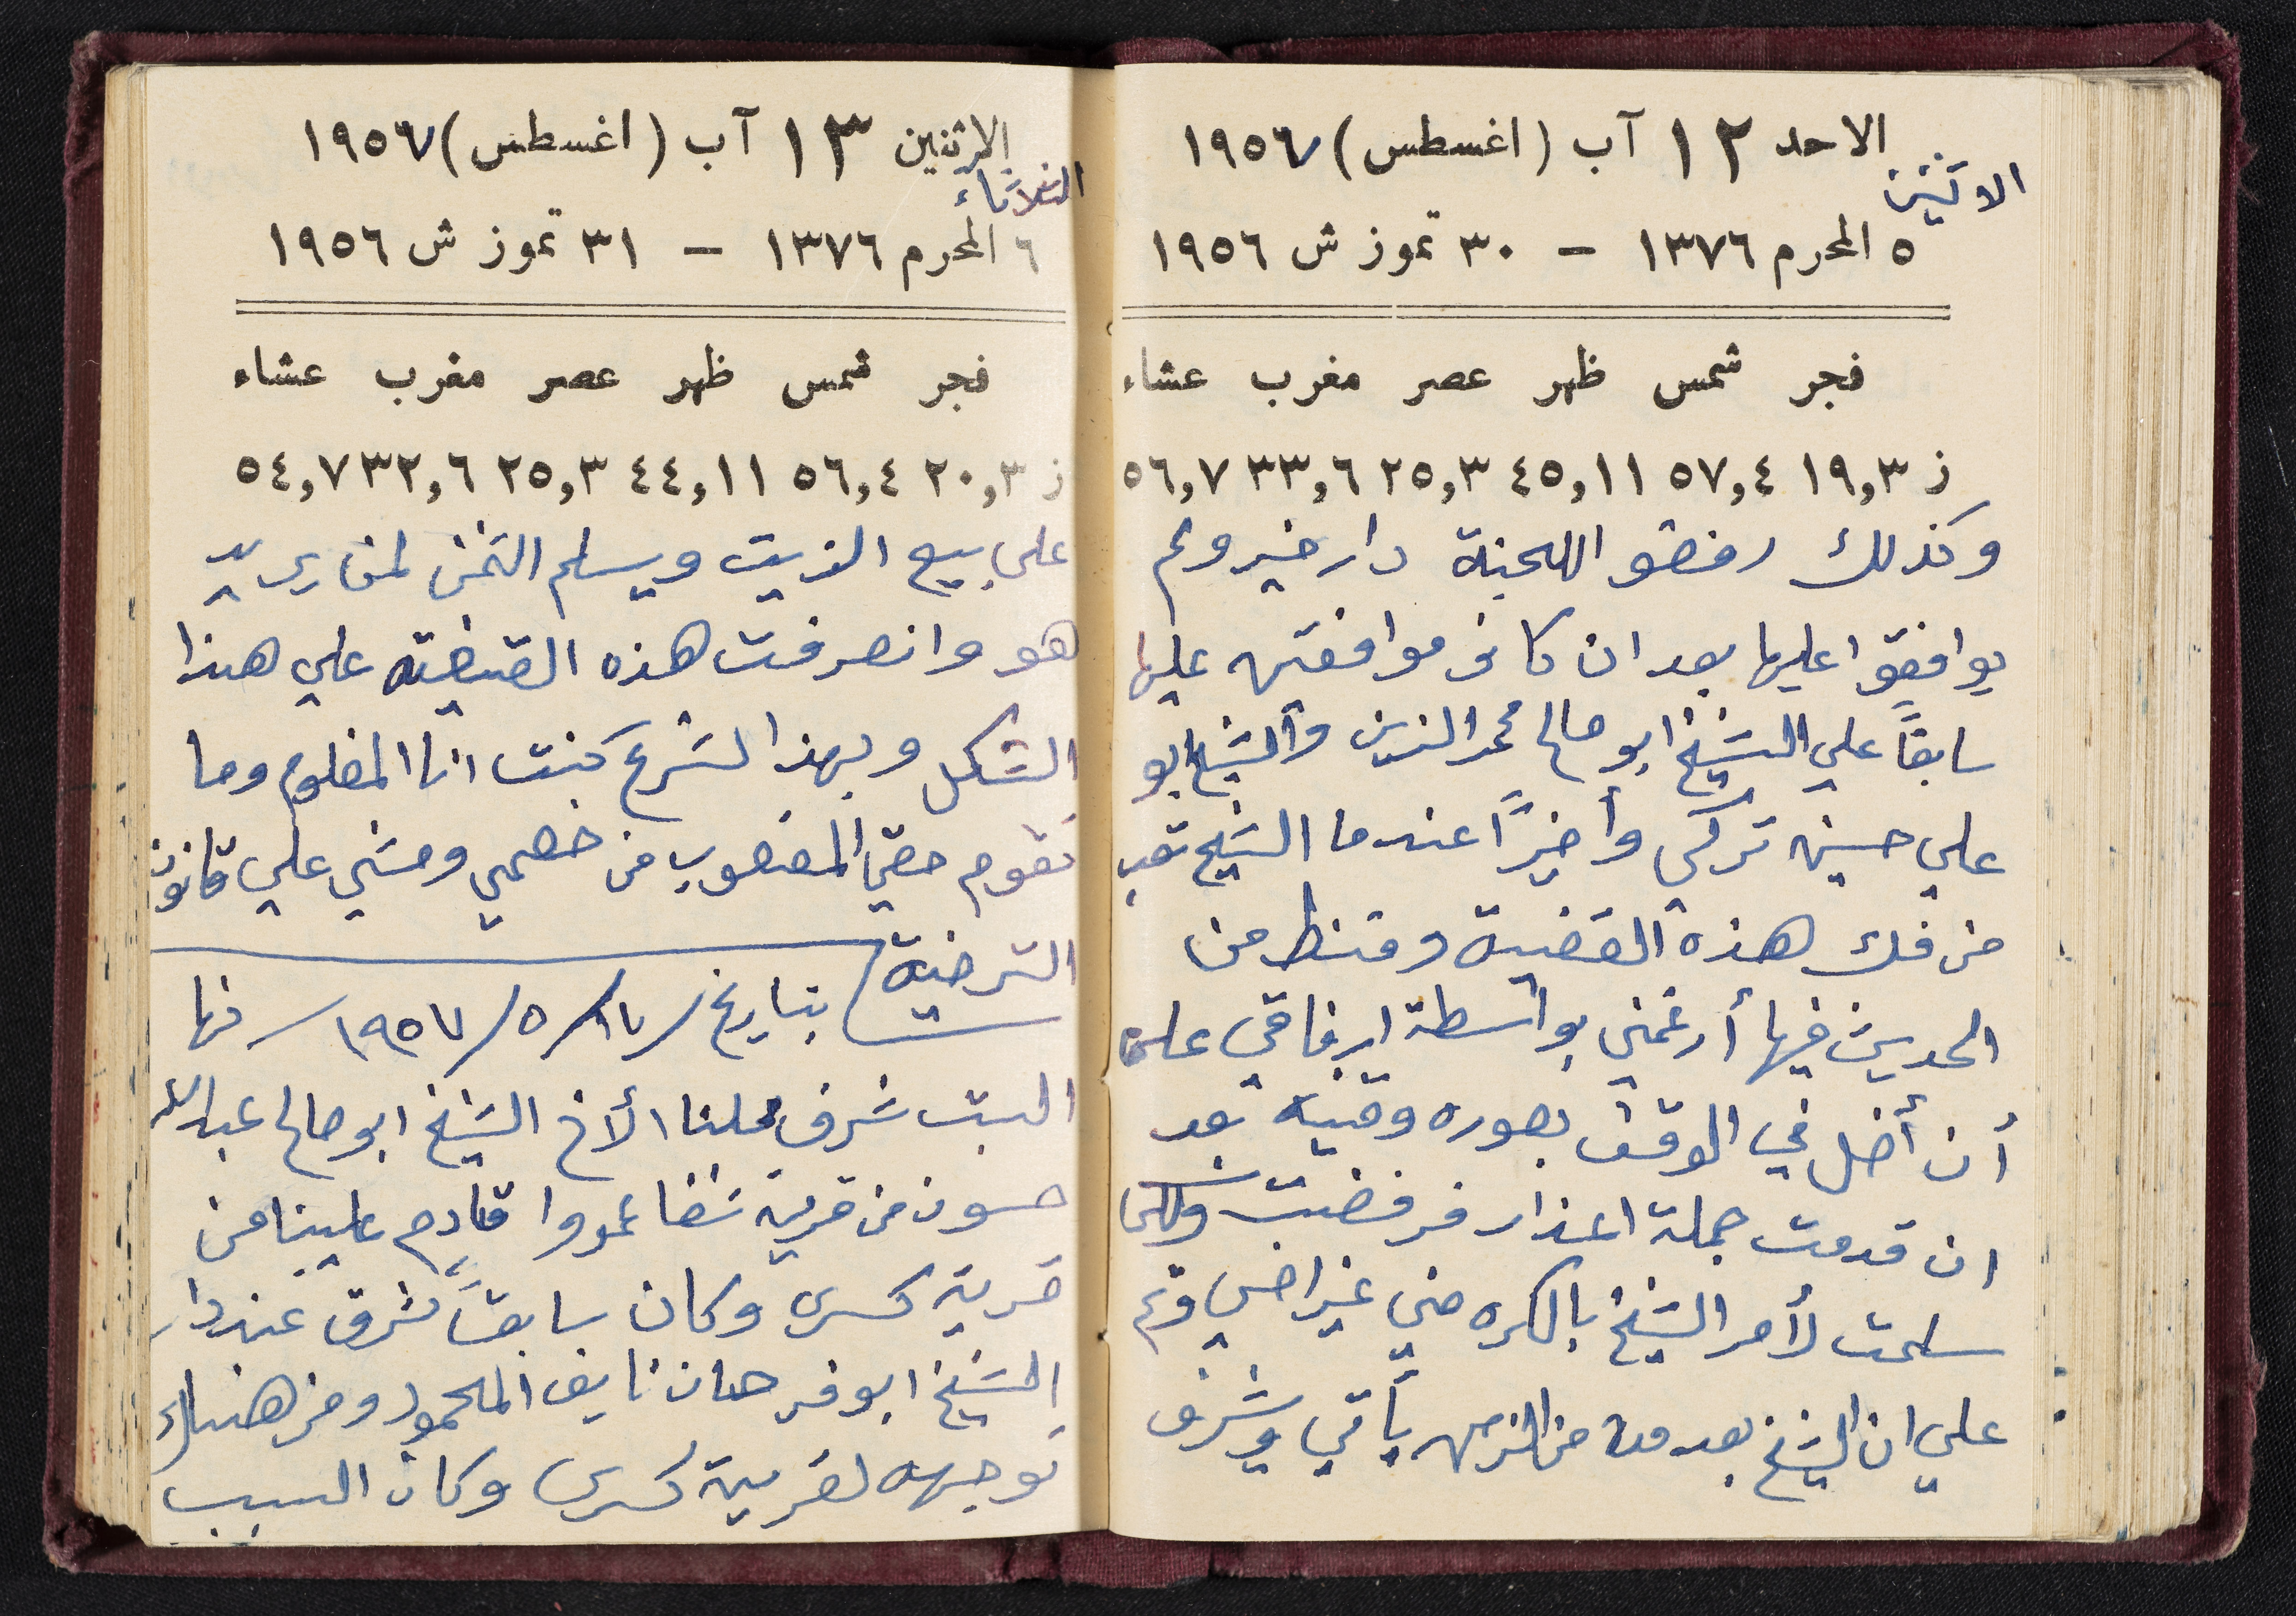 الاحد ١٢ آب (اغسطس) ١٩٥٧
الاثنين
٥ المحرم ١٣٧٦ – ٣٠ تموز ش ١٩٥٦
فجر شمس ظهر عصر مغرب عشاء
ز ١٩,٣ ٥٧,٤ ٤٥,١١ ٢٥,٣ ٣٣,٦ ٥٦,٧
وكذلك رفضو اللجنة دار خير ولم
يوافقوا عليها بعد ان كانو موافقين عليها
سابقاً علي الشيخ ابو صالح محمد الزين والشيخ ابو
علي حسين تركي وأخيرًا عندما الشيخ تعب
من فك هذة القضية وقنط من
الحديث فيها أرغمني بواسطة ارفاقي على
أن أضل في الوقف بصوره وقتيه بعد
ان قدمت جملة اعذار فرفضت ولكن
سلمت لأمر الشيخ بالكره مني غير راضي وتم
علي ان الشيخ بعد مدة من الزمن يأتي ويشرف
الاثنين ١٣ آب (اغسطس) ١٩٥٧
الثلاثاء
٦ المحرم ١٣٧٦ – ٣١ تموز ش ١٩٥٦
فجر شمس ظهر عصر مغرب عشاء
ز ٢٠,٣ ٥٦,٤ ٤٤,١١ ٢٥,٣ ٣٢,٦ ٥٤,٧
على بيع الزيت ويسلم الثمن لمن يريد
هو وانصرفت هذه القضيته علي هذا
الشكل وبهذا الشرع كنت انا المظلوم وما
تقوم حقي المغضوب من خصمي ومشي علي قانون
الترضية / بتاريخ / ١٧ / ٥ / ١٩٥٧ / نهار
السبت شرف محلنا الأخ الشيخ ابو صالح عبدالله
حسون من قرية شفاعمروا قادم علينا من
قرية كسرى وكان سابقاً مشرف عند دار
الشيخ ابو فرحان نايف المحمود ومن هناك
توجهه لقرية كسرى وكان السبب